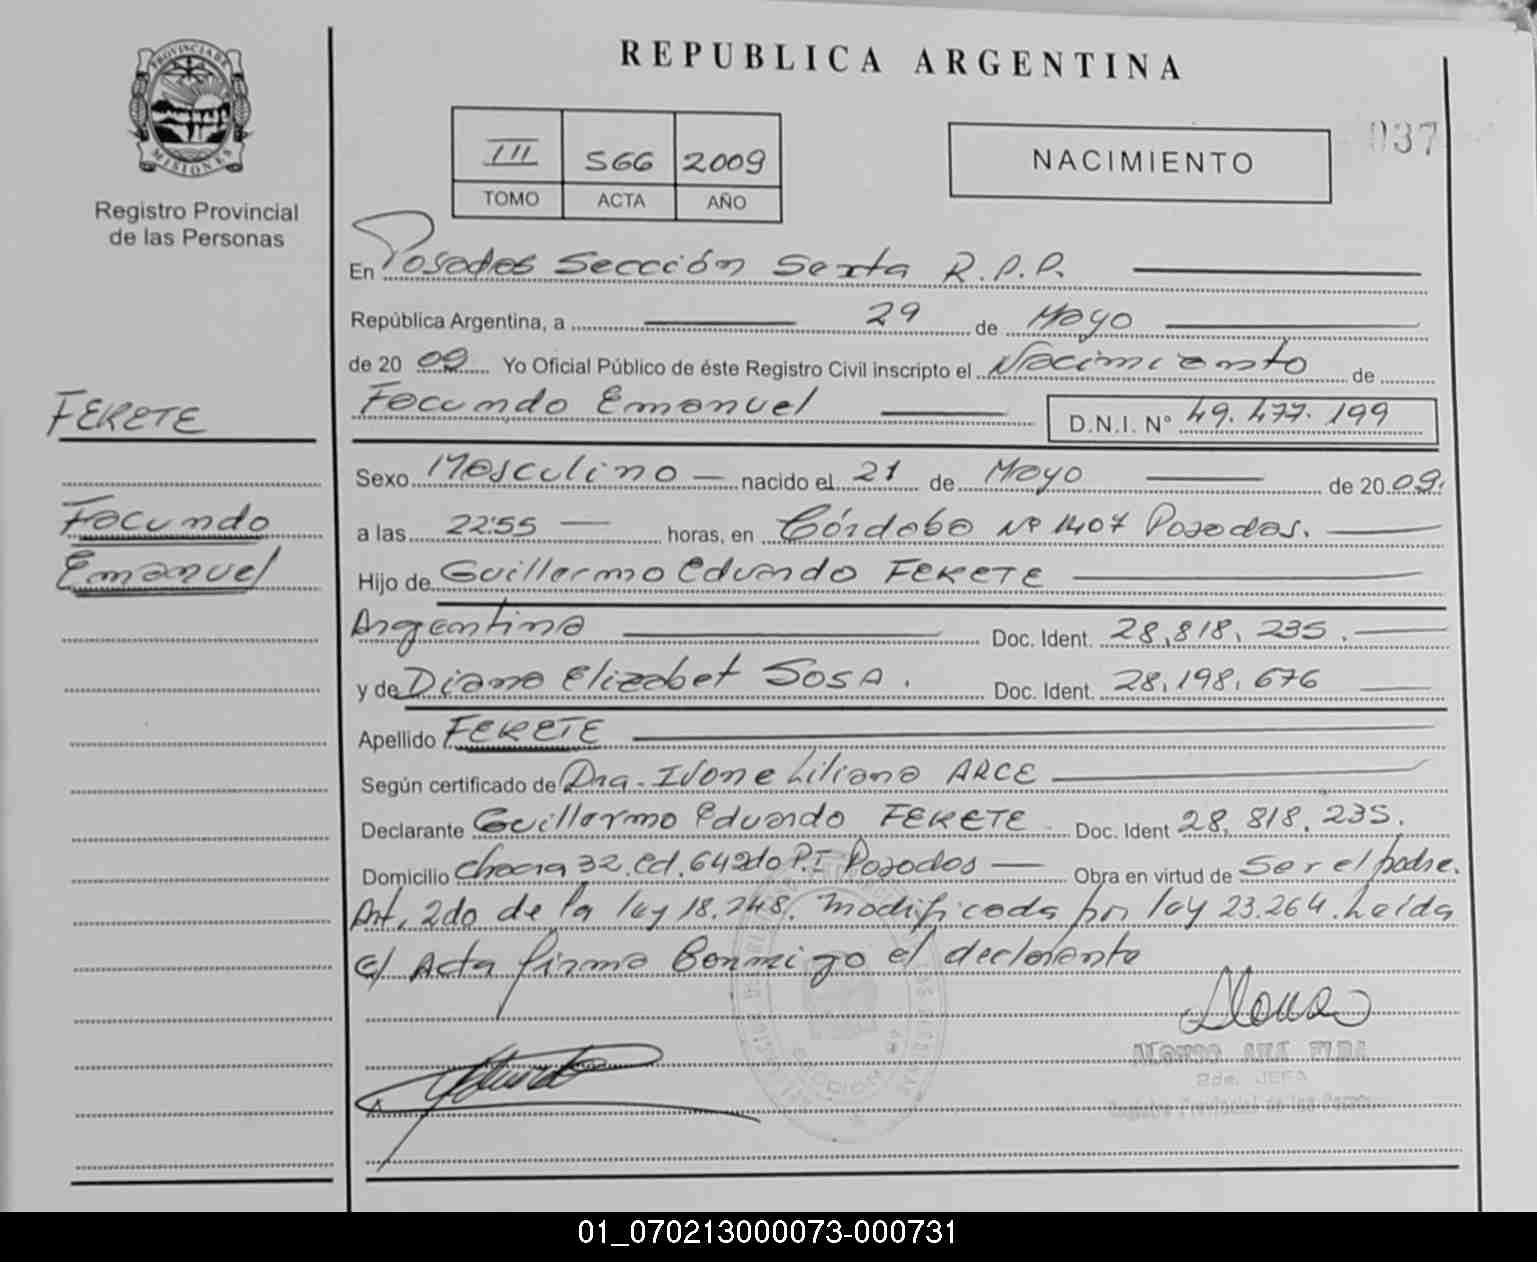 PROVINCIA DE
MISIONES
Registro Provincial
de las Personas
REPUBLICA ARGENTINA
III 566 2009
TOMO ACTA AÑO
NACIMIENTO
037
En Posadas Sección Sexta R.P.P.
República Argentina, a 29 de Mayo
de 20 09 Yo Oficial Público de éste Registro Civil inscripto el Nacimiento de
Facundo Emanuel D.N.I. N° 49.477.199
FEKETE
Sexo Masculino nacido el 21 de Mayo de 20 09.
Facundo
a las 22:55 horas, en Córdoba Nº 1407 Posadas.
Emanuel
Hijo de Guillermo Eduardo FEKETE
Argentino Doc. Ident. 28.818.235.
y de Diana Elizabet SOSA. Doc. Ident. 28.198.676
Apellido FEKETE
Según certificado de Dra. Ivone Liliana ARCE
Declarante Guillermo Eduardo FEKETE Doc. Ident 28.818.235.
Domicilio chacra 32. Ed. 6 P.I Posadas Obra en virtud de Ser el padre.
Art. 2do de la ley 18.248. modificada por ley 23.264. Leida
el Acta firma Conmigo el declarante
Alonso
ALONSO ANA ELBA
2da. JEFA
Registro Provincial de las Personas
01_070213000073-000731